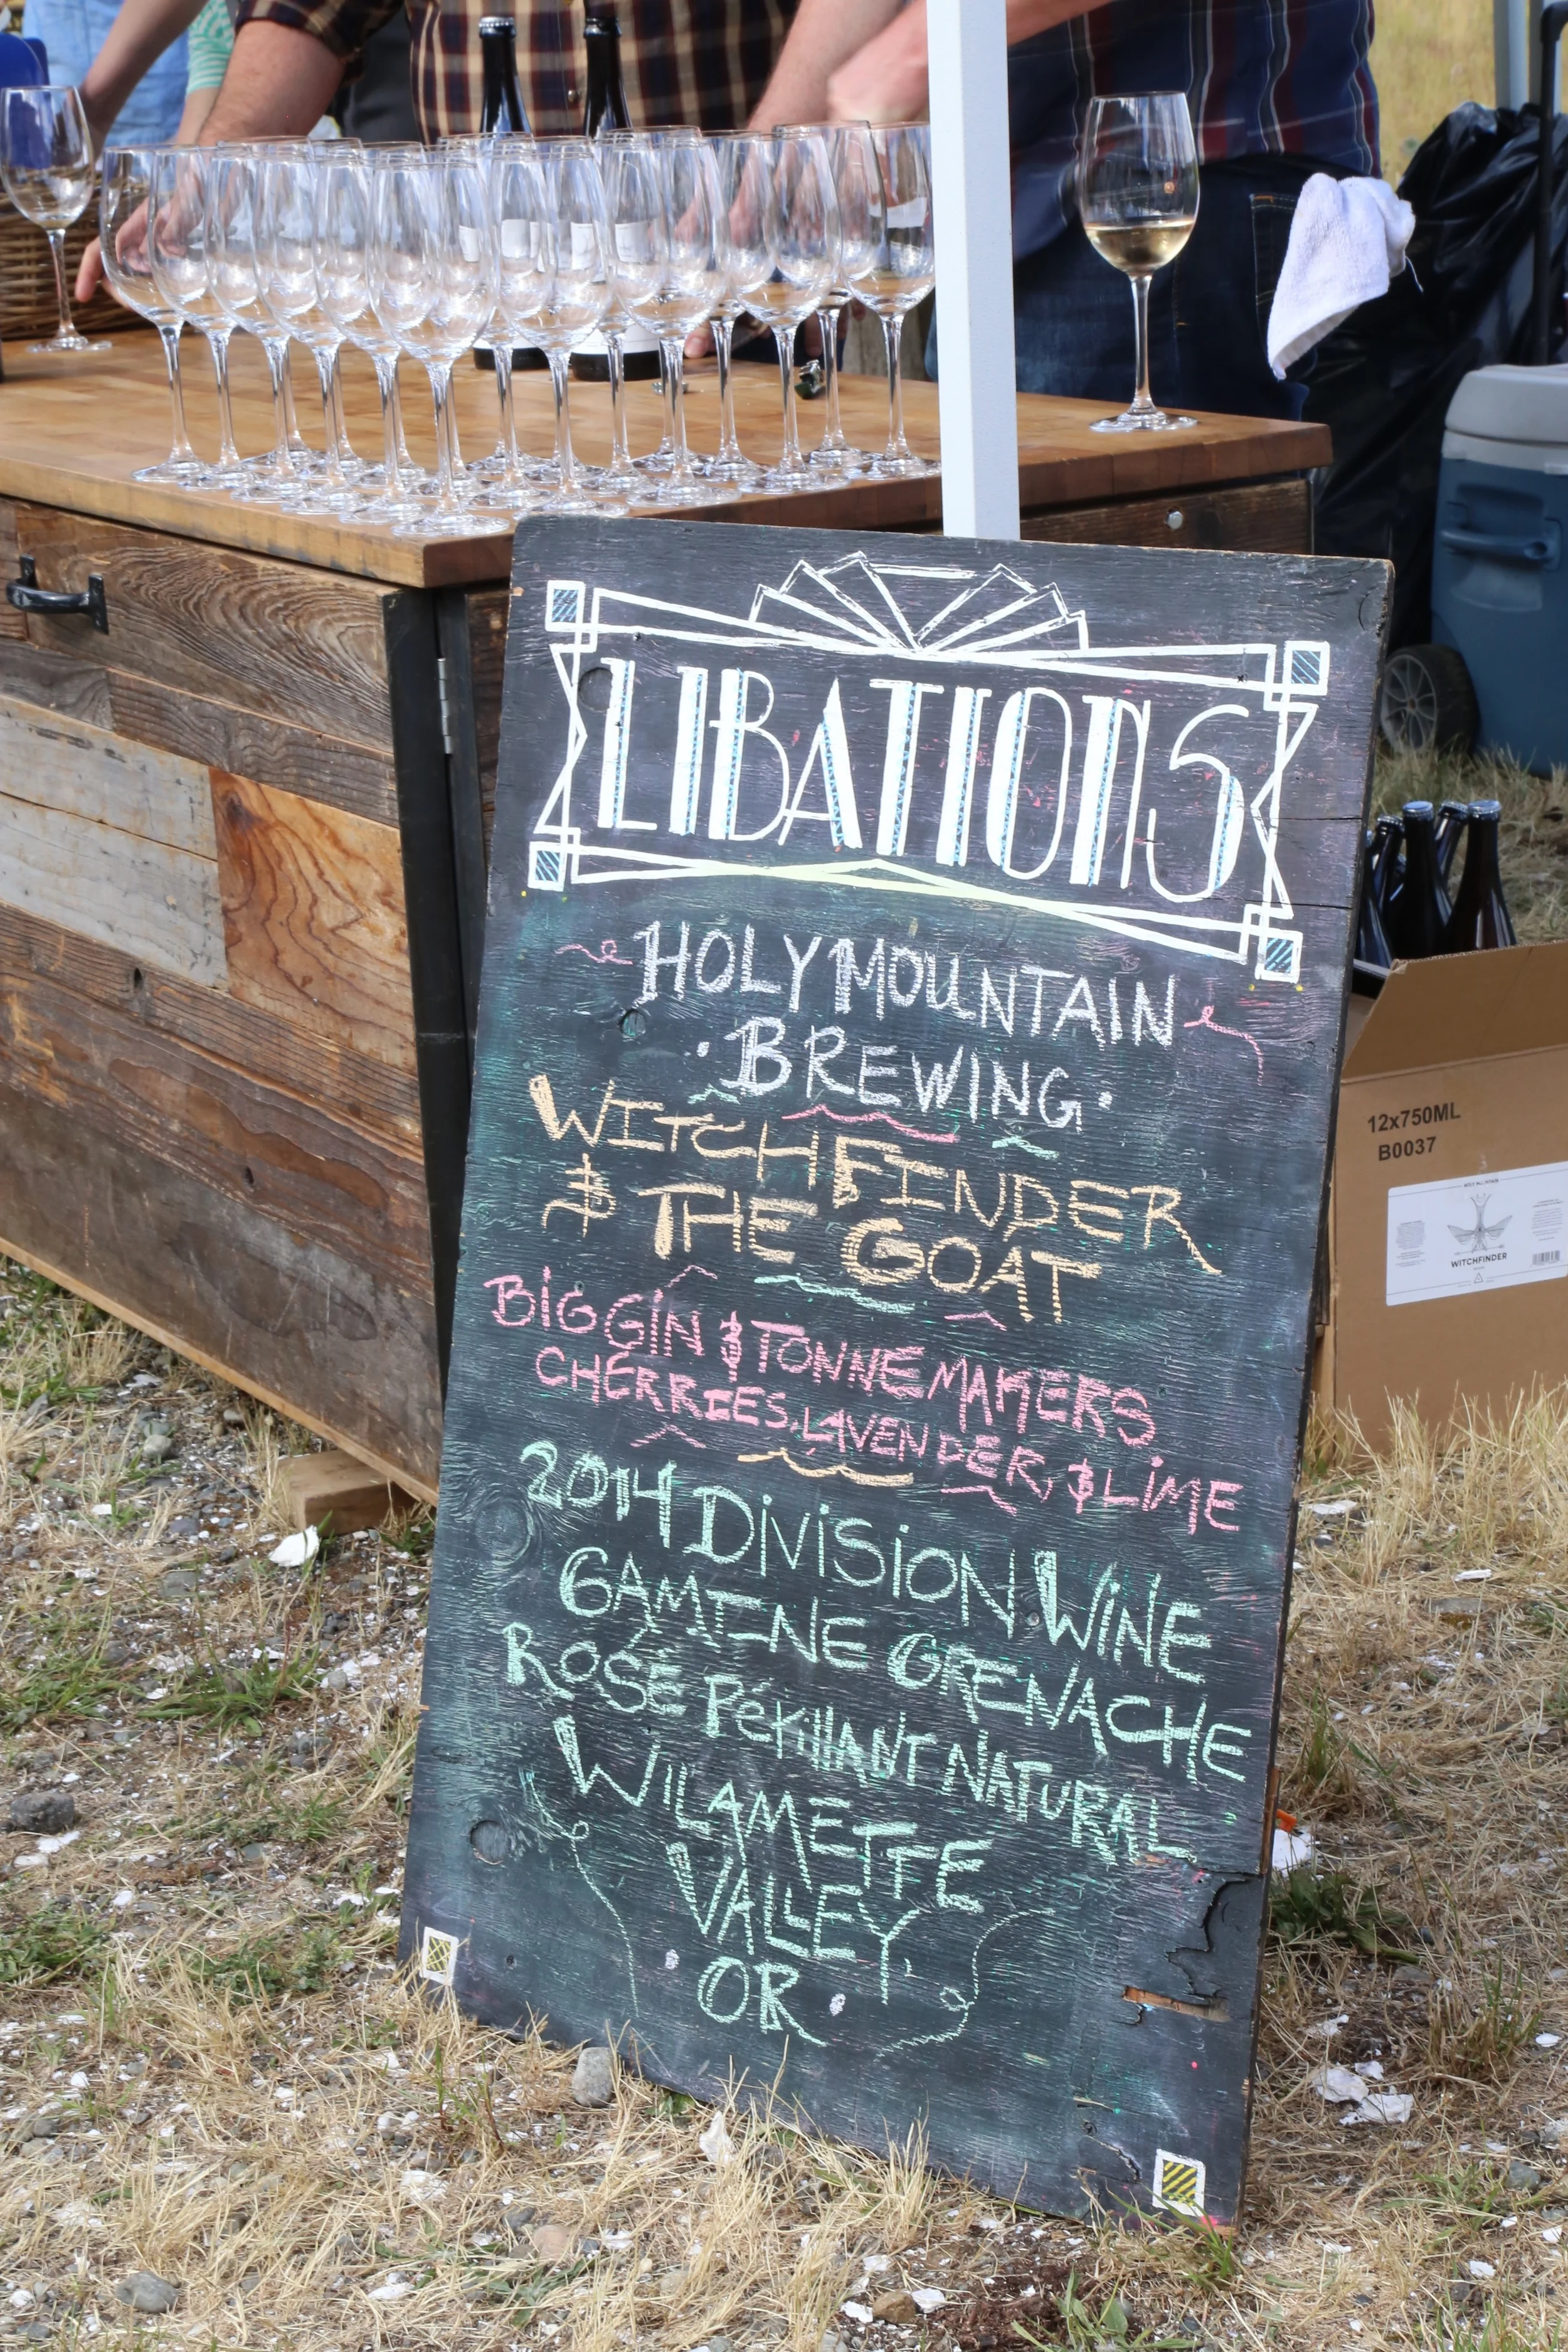 LIBATIONS
HOLY MOUNTAIN
·BREWING·
WITCHFINDER
& THE GOAT
BIG GIN & TONNEMAKERS
CHERRIES, LAVENDER, & LIME
2014 DIVISION WINE
GAMINE GRENACHE
ROSÉ PéTillANT NATURAL
WILAMETTE
VALLEY
OR
12x750ML
B0037
WITCHFINDER